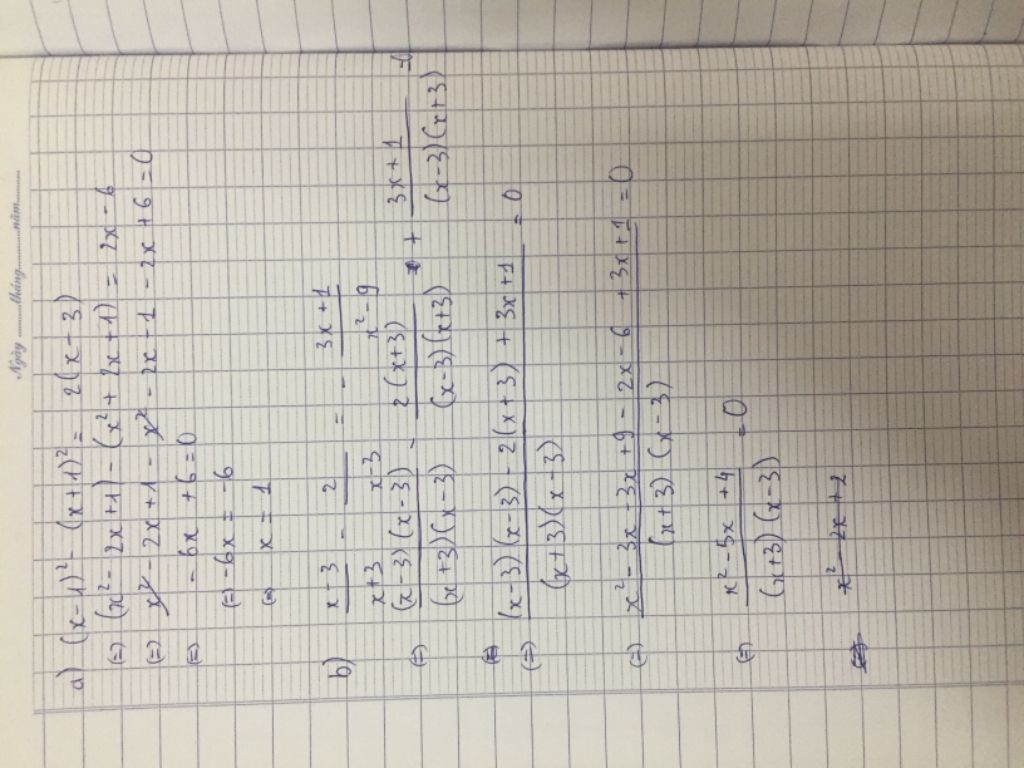 Ngày ..........tháng..........năm..........
a) (x-1)² - (x+1)² = 2(x-3)
(=) (x² - 2x+1) - (x² + 2x+1) = 2x-6
(=) x² - 2x+1 - x² - 2x - 1 - 2x + 6 = 0
(=) - 6x + 6 = 0
(=) -6x = -6
(=) x = 1
b) (x-3)/(x+3) - 2/(x-3) = - (3x+1)/(x²-9)
(=) (x-3)(x-3)/(x+3)(x-3) - 2(x+3)/(x-3)(x+3) + (3x+1)/(x-3)(x+3)
(=) ((x-3)(x-3) - 2(x+3) + 3x+1)/(x+3)(x-3) = 0
(=) (x² - 3x - 3x + 9 - 2x - 6 + 3x+1)/(x+3)(x-3) = 0
(=) (x² - 5x + 4)/(x+3)(x-3) = 0
x² - 2x + 2